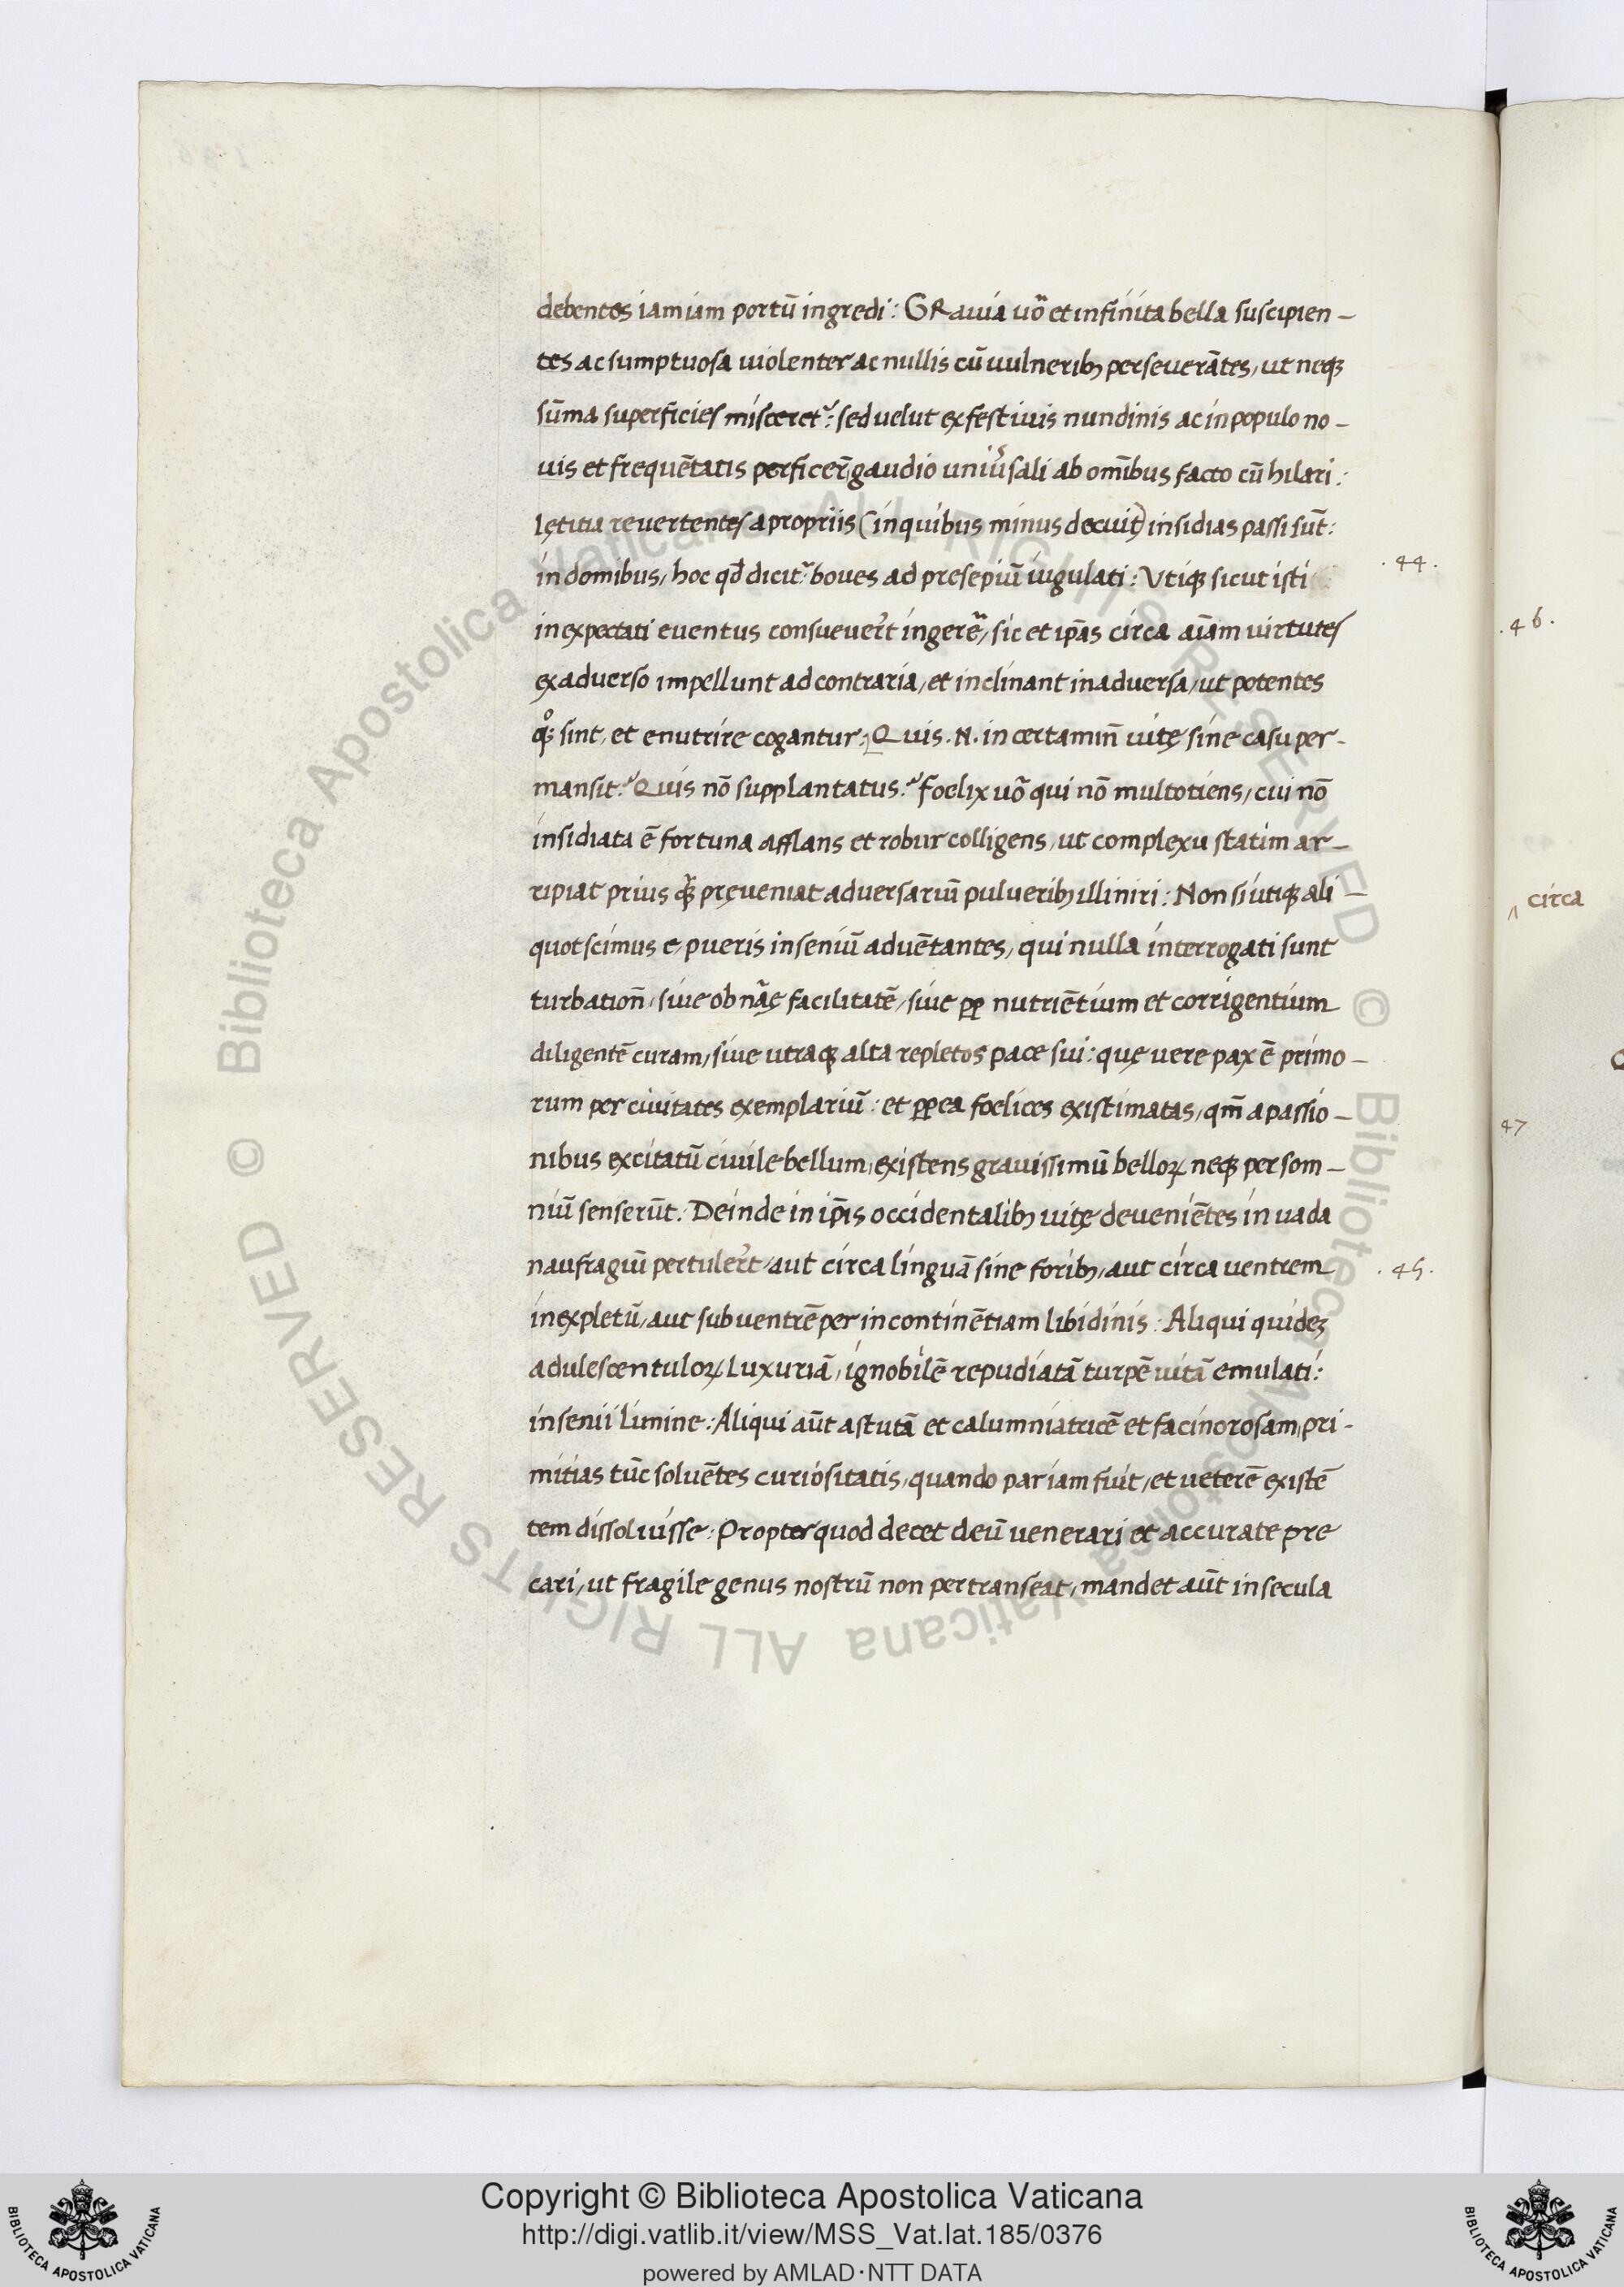 debentes iam iam portū ingredi: GRauia uō et infinita bella suscipien-
tes ac sumptuosa uiolenter ac nullis cū uulneribꝫ perseuerātes, ut neqꝫ
sūma superficies misceret᷑: sed uelut ex festiuis nundinis ac in populo no-
uis et frequētatis perficer̄, gaudio uniu̓sali ab om̄ibus facto cū hilari:
lętitia reuertentes a propriis (in quibus minus decuit) insidias passi sūt:
in domibus, hoc qđ dicit᷑: boues ad presepiū iugulati: Vtiqꝫ sicut isti
inexpectati euentus consueuer̄t ingerē, sic et ip̄as circa aīam uirtutes
ex aduerso impellunt ad contraria, et inclinant in aduersa, ut potentes
qꝫͦ sint, et enutrire cogantur: Quis .N. in certamin̄ uitę sine casu per-
mansit? Quis nō supplantatus? Foelix uō qui nō multotiens, cui nō
insidiata ē fortuna afflans et robur colligens, ut complexu statim ar-
ripiat prius q̄ꝫ pręueniat aduersariū pulueribꝫ illiniri: Non si utiqꝫ ali-
quot scimus e, pueris in seniū aduētantes, qui nulla interrogati sunt
turbation̄, siue ob nāę facilitatē, siue pp nutriētium et corrigentium
diligentē curam, siue utraqꝫ alta repletos pace sui: quę uere pax ē primo-
rum per ciuitates exemplariū: et pp ea foelices existimatas, qm̄ a passio-
nibus excitatū ciuile bellum, existens grauissimū belloꝝ neqꝫ per som-
niū senserūt. Deinde in ip̄is occidentalibꝫ uitę deueniētes in uada
naufragiū pertuler̄t, aut circa linguā sine foribꝫ, aut circa uentrem
inexpletū, aut sub uentrē per incontinētiam libidinis: Aliqui quideꝫ
adulescentuloꝝ luxuriā, ignobilē repudiatā turpē uitā emulati:
in senii limine: Aliqui aūt astutā et calumniatricē et facinorosam, pri-
mitias tūc soluētes curiositatis, quando par iam fuit, et ueterē existē
tem dissoluisse: Propter quod decet deū uenerari et accurate pre
cari, ut fragile genus nostrū non pertranseat, mandet aūt in secula
.44.
.45.
.46.
circa
47
© Biblioteca Apostolica Vaticana ALL RIGHTS RESERVED © Biblioteca Apostolica Vaticana ALL RIGHTS RESERVED
Copyright © Biblioteca Apostolica Vaticana
http://digi.vatlib.it/view/MSS_Vat.lat.185/0376
powered by AMLAD·NTT DATA
BIBLIOTECA APOSTOLICA VATICANA
BIBLIOTECA APOSTOLICA VATICANA